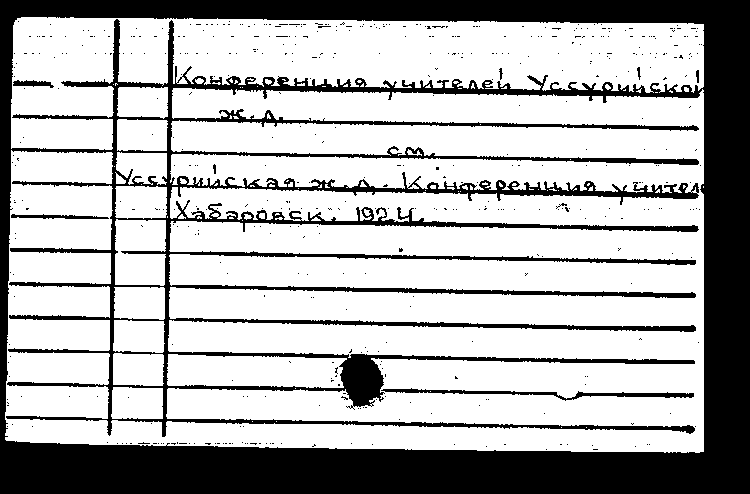 Конференция учителей Уссурийской
ж.д.
см.
Уссурийская ж.д. Конференция учителе
Хабаровск. 1924.